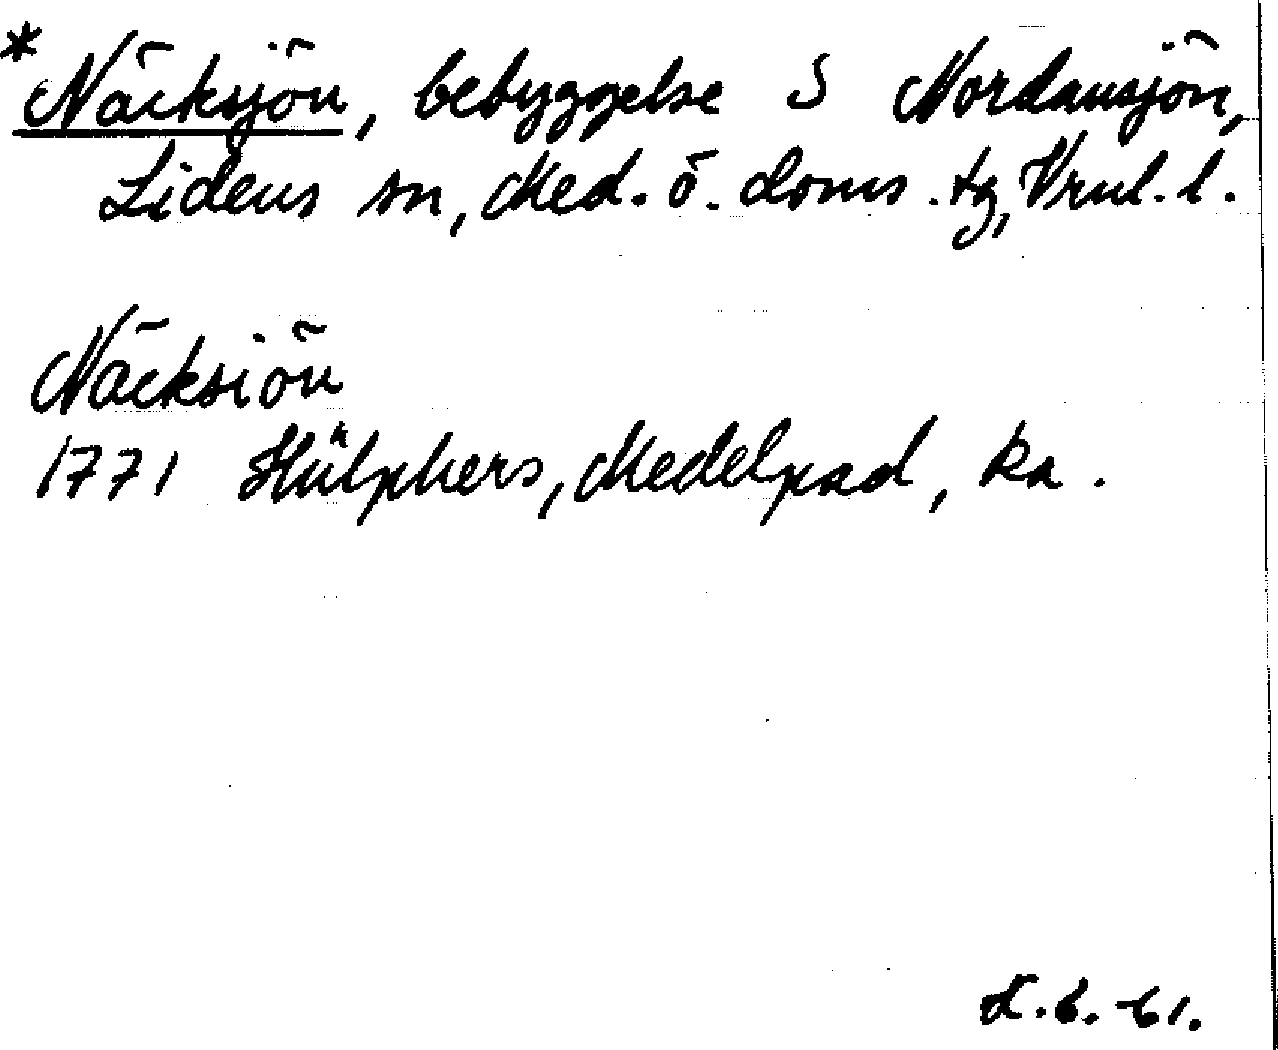 *Näcksjön, bebyggelse S Nordansjön,
Lidens sn, Med. ö. doms. tg, Vrnl. l.
Näcksiön
1771 Hülphers, Medelpad, ka.
L.b. -61.